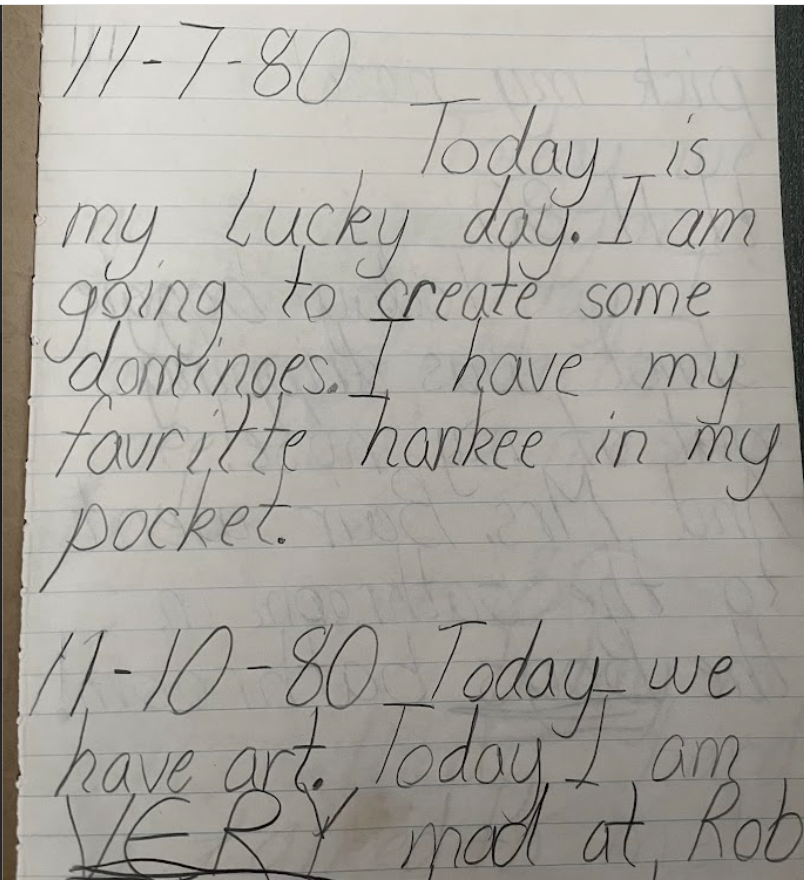 11-7-80
Today is
my lucky day. I am
going to create some
dominoes. I have my
favritte hankee in my
pocket.
11-10-80 Today we
have art. Today I am
VERY mad at Rob